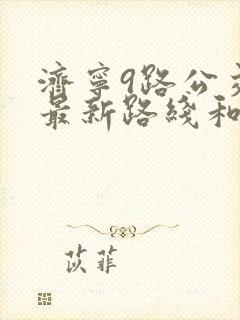 濟寧9路公交
最新路綫和
苡菲